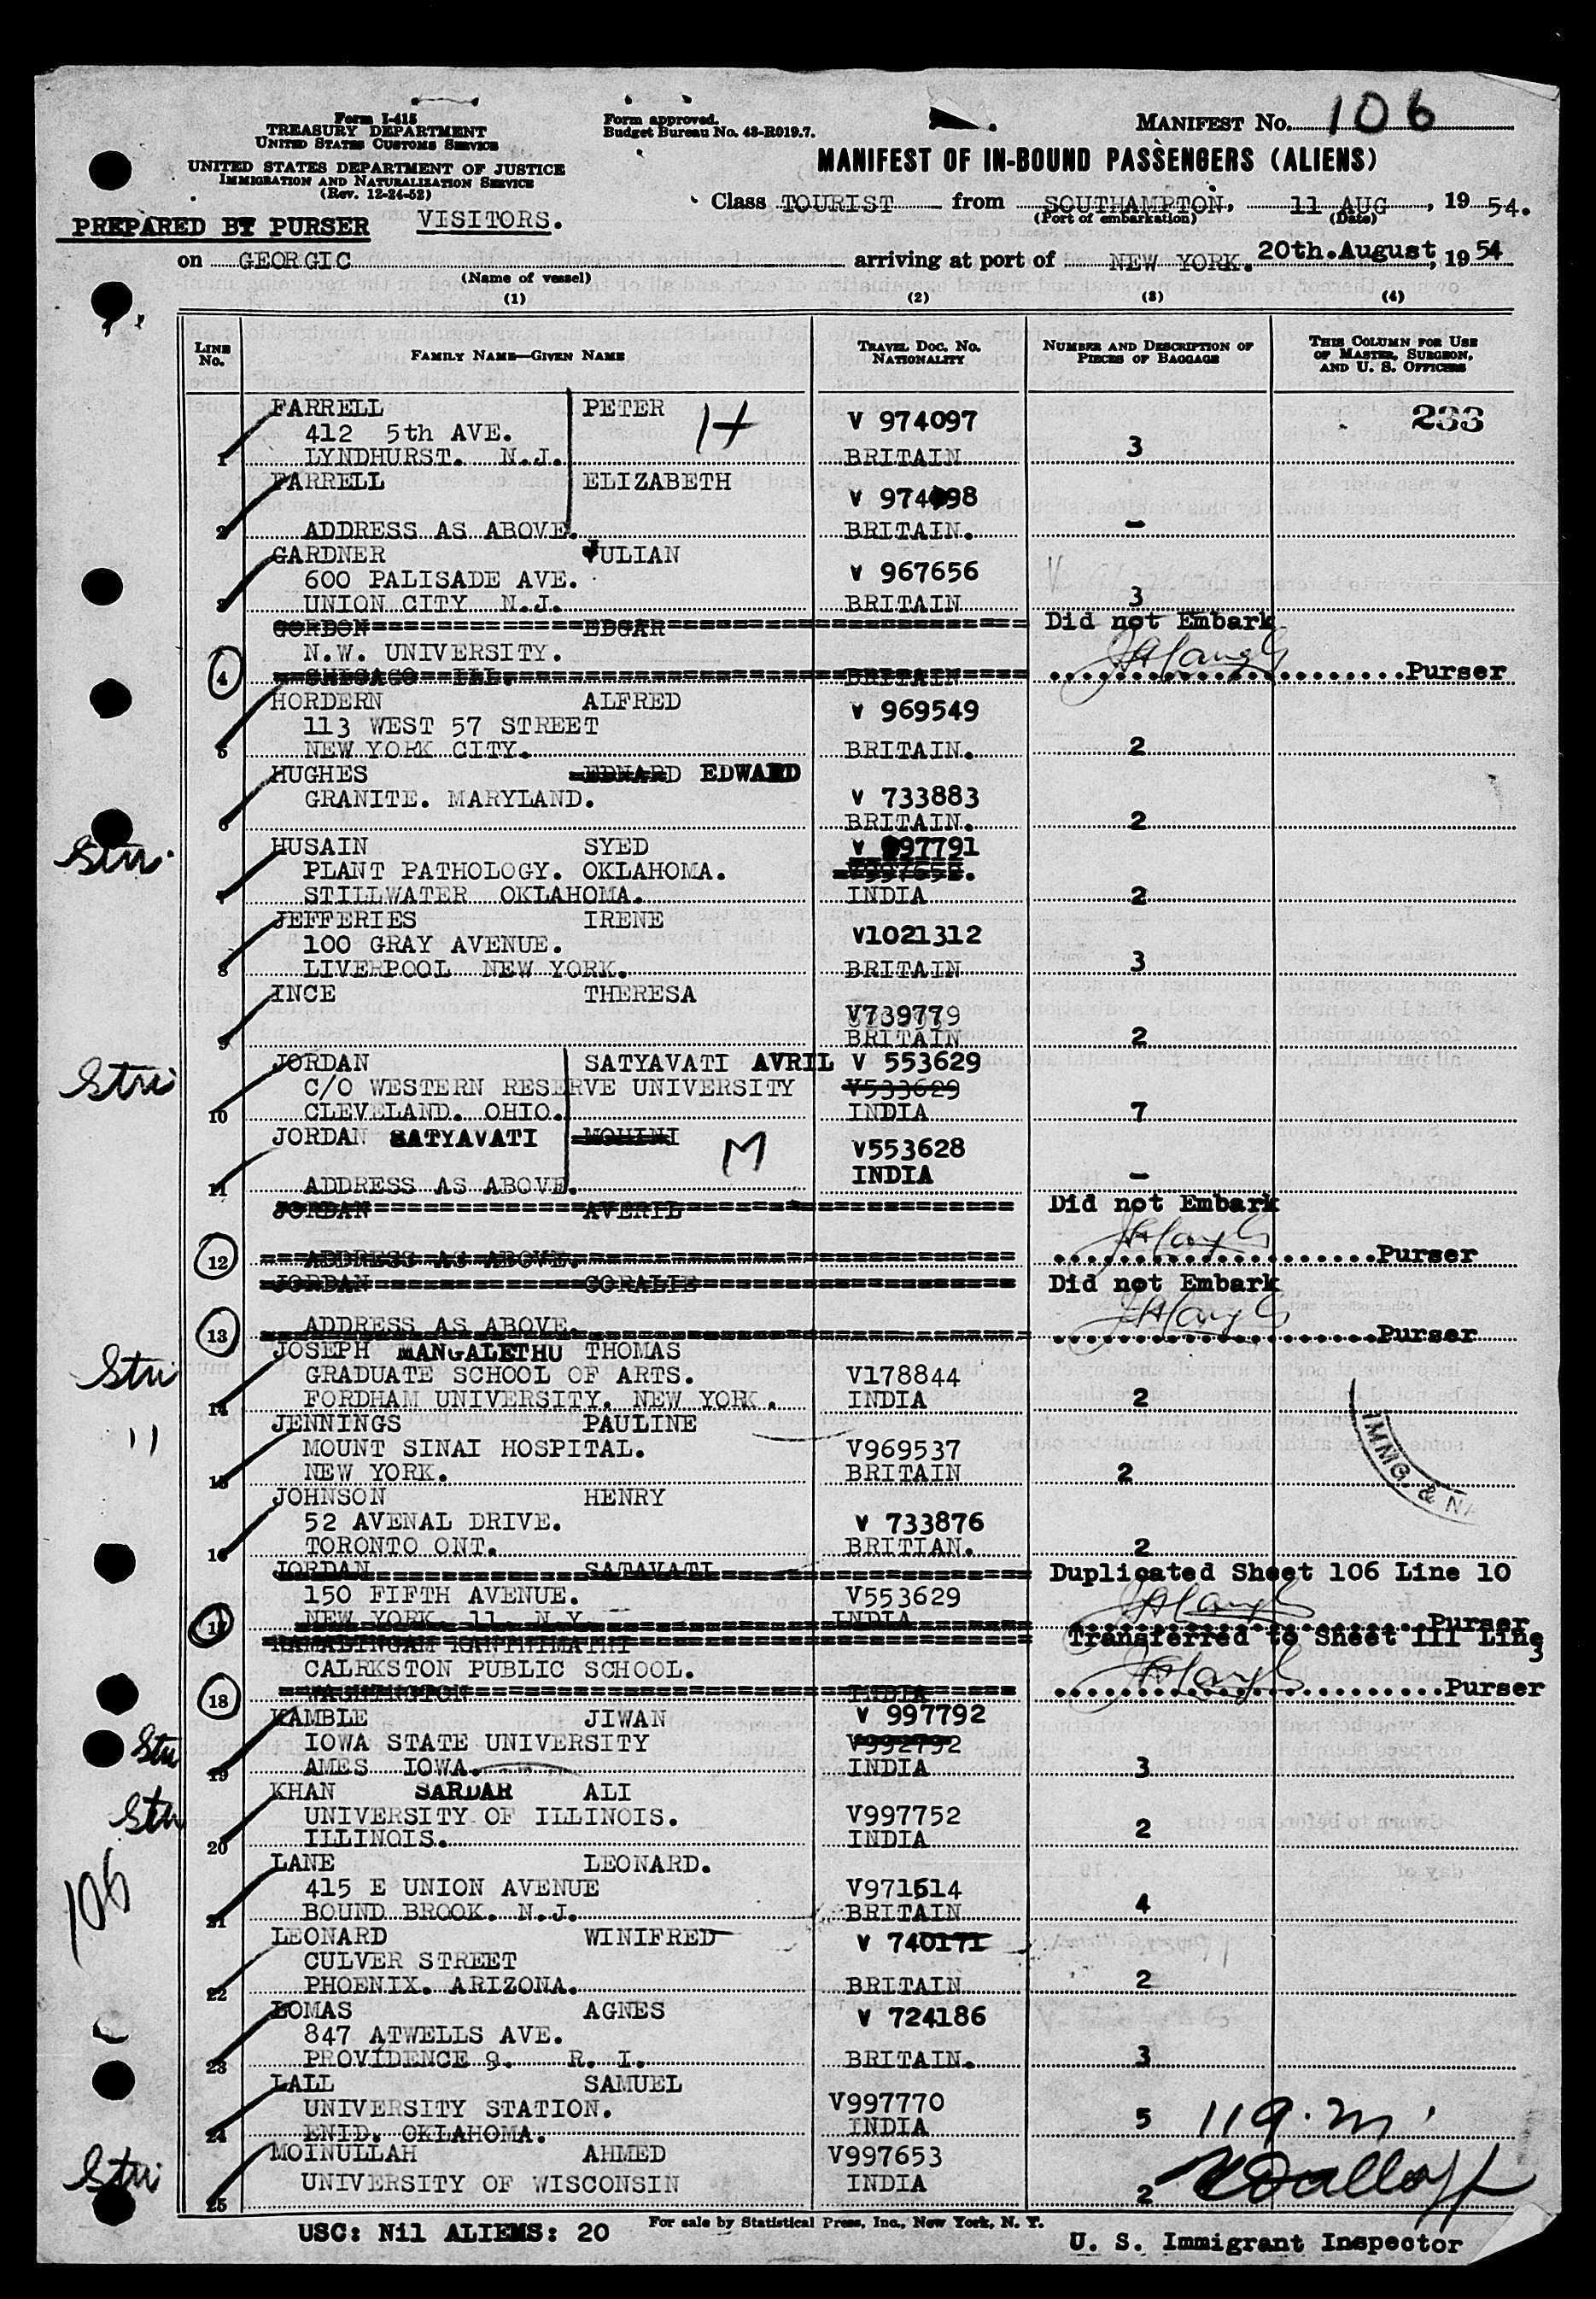 Form I-415
TREASURY DEPARTMENT
UNITED STATES CUSTOMS SERVICE
UNITED STATES DEPARTMENT OF JUSTICE
IMMIGRATION AND NATURALIZATION SERVICE
(Rev. 12-24-52)
Form approved.
Budget Bureau No. 43-R019.7.
MANIFEST No. 106
MANIFEST OF IN-BOUND PASSENGERS (ALIENS)
Class TOURIST from SOUTHAMPTON, 11 AUG, 1954.
(Port of embarkation) (Date)
PREPARED BY PURSER VISITORS.
on GEORGIC arriving at port of NEW YORK. 20th.August, 1954
(Name of vessel)
(1) (2) (3) (4)
LINE No. FAMILY NAME—GIVEN NAME TRAVEL DOC. NO. NATIONALITY NUMBER AND DESCRIPTION OF PIECES OF BAGGAGE THIS COLUMN FOR USE OF MASTER, SURGEON, AND U. S. OFFICERS
FARRELL PETER H V 974097 233
412 5th AVE.
1 LYNDHURST. N.J. BRITAIN 3
FARRELL ELIZABETH V 974098
2 ADDRESS AS ABOVE. BRITAIN. —
GARDNER JULIAN
600 PALISADE AVE. V 967656
3 UNION CITY N.J. BRITAIN 3
GORDON EDGAR Did not Embark
N.W. UNIVERSITY.
4 CHICAGO ILL. BRITAIN Purser
HORDERN ALFRED V 969549
113 WEST 57 STREET
5 NEW YORK CITY. BRITAIN. 2
HUGHES EDNARD EDWARD
GRANITE. MARYLAND. V 733883
6 BRITAIN. 2
Stu. HUSAIN SYED V 997791
PLANT PATHOLOGY. OKLAHOMA. V997652.
7 STILLWATER OKLAHOMA. INDIA 2
JEFFERIES IRENE V1021312
100 GRAY AVENUE.
8 LIVERPOOL NEW YORK. BRITAIN 3
INCE THERESA
V739779
9 BRITAIN 2
Stu JORDAN SATYAVATI AVRIL V 553629
C/O WESTERN RESERVE UNIVERSITY V533629
10 CLEVELAND. OHIO. INDIA 7
JORDAN SATYAVATI MOHINI M V553628
INDIA
11 ADDRESS AS ABOVE. —
JORDAN AVERIL Did not Embark
12 ADDRESS AS ABOVE. Purser
JORDAN CORALIE Did not Embark
13 ADDRESS AS ABOVE. Purser
Stu JOSEPH MANGALETHU THOMAS
GRADUATE SCHOOL OF ARTS. V178844
14 FORDHAM UNIVERSITY. NEW YORK. INDIA 2
11 JENNINGS PAULINE
MOUNT SINAI HOSPITAL. V969537
15 NEW YORK. BRITAIN 2
IMMG. & NA
JOHNSON HENRY
52 AVENAL DRIVE. V 733876
16 TORONTO ONT. BRITIAN. 2
JORDAN SATAVATI Duplicated Sheet 106 Line 10
150 FIFTH AVENUE. V553629
17 NEW YORK 11 N.Y. INDIA Purser
RAMALINGAM KANTHIMATHI Transferred to Sheet III Line 3
CALRKSTON PUBLIC SCHOOL.
18 WASHINGTON INDIA Purser
KAMBLE JIWAN V 997792
Stu IOWA STATE UNIVERSITY V992792
19 AMES IOWA. INDIA 3
Stu KHAN SARDAR ALI
UNIVERSITY OF ILLINOIS. V997752
20 ILLINOIS. INDIA 2
106 LANE LEONARD.
415 E UNION AVENUE V971514
21 BOUND BROOK. N.J. BRITAIN 4
LEONARD WINIFRED V 740171
CULVER STREET
22 PHOENIX. ARIZONA. BRITAIN 2
LOMAS AGNES V 724186
847 ATWELLS AVE.
23 PROVIDENCE 9. R. I. BRITAIN. 3
LALL SAMUEL
UNIVERSITY STATION. V997770
24 ENID. OKLAHOMA. INDIA 5 119.m.
MOINULLAH AHMED V997653
Stu UNIVERSITY OF WISCONSIN INDIA
25 2
USC: Nil ALIEMS: 20 For sale by Statistical Press, Inc., New York, N. Y.
U. S. Immigrant Inspector